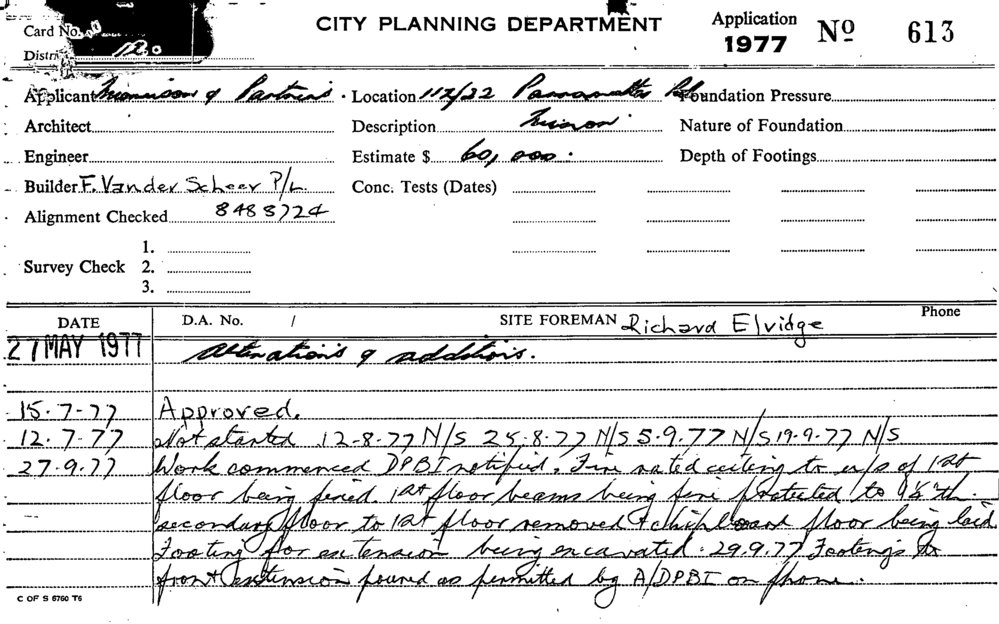 Card No.
CITY PLANNING DEPARTMENT
Application 1977 No 613
Distri 120
Applicant Morrison & Partners. Location 112/32 Parramatta Rd. Foundation Pressure
Architect Description Minor. Nature of Foundation
Engineer Estimate $ 60,000. Depth of Footings
Builder F. Vander Scheer P/L. Conc. Tests (Dates)
Alignment Checked 8488724
1.
Survey Check 2.
3.
DATE D.A. No. / SITE FOREMAN Richard Elvidge Phone
27 MAY 1977 Alterations & additions.
15.7.77 Approved.
12.7.77 Not started 12-8-77 N/S 25.8.77 N/S 5.9.77 N/S 19.9.77 N/S
27.9.77 Work commenced DPBI notified. Fire rated ceiling to u/s of 1st
floor being fixed 1st floor beams being fire protected to
secondary floor to 1st floor removed & chipboard floor being laid
Footing for extension being excavated. 29.9.77 Footings to
front extension poured as permitted by A/DPBI on phone.
C OF S 6760 T6